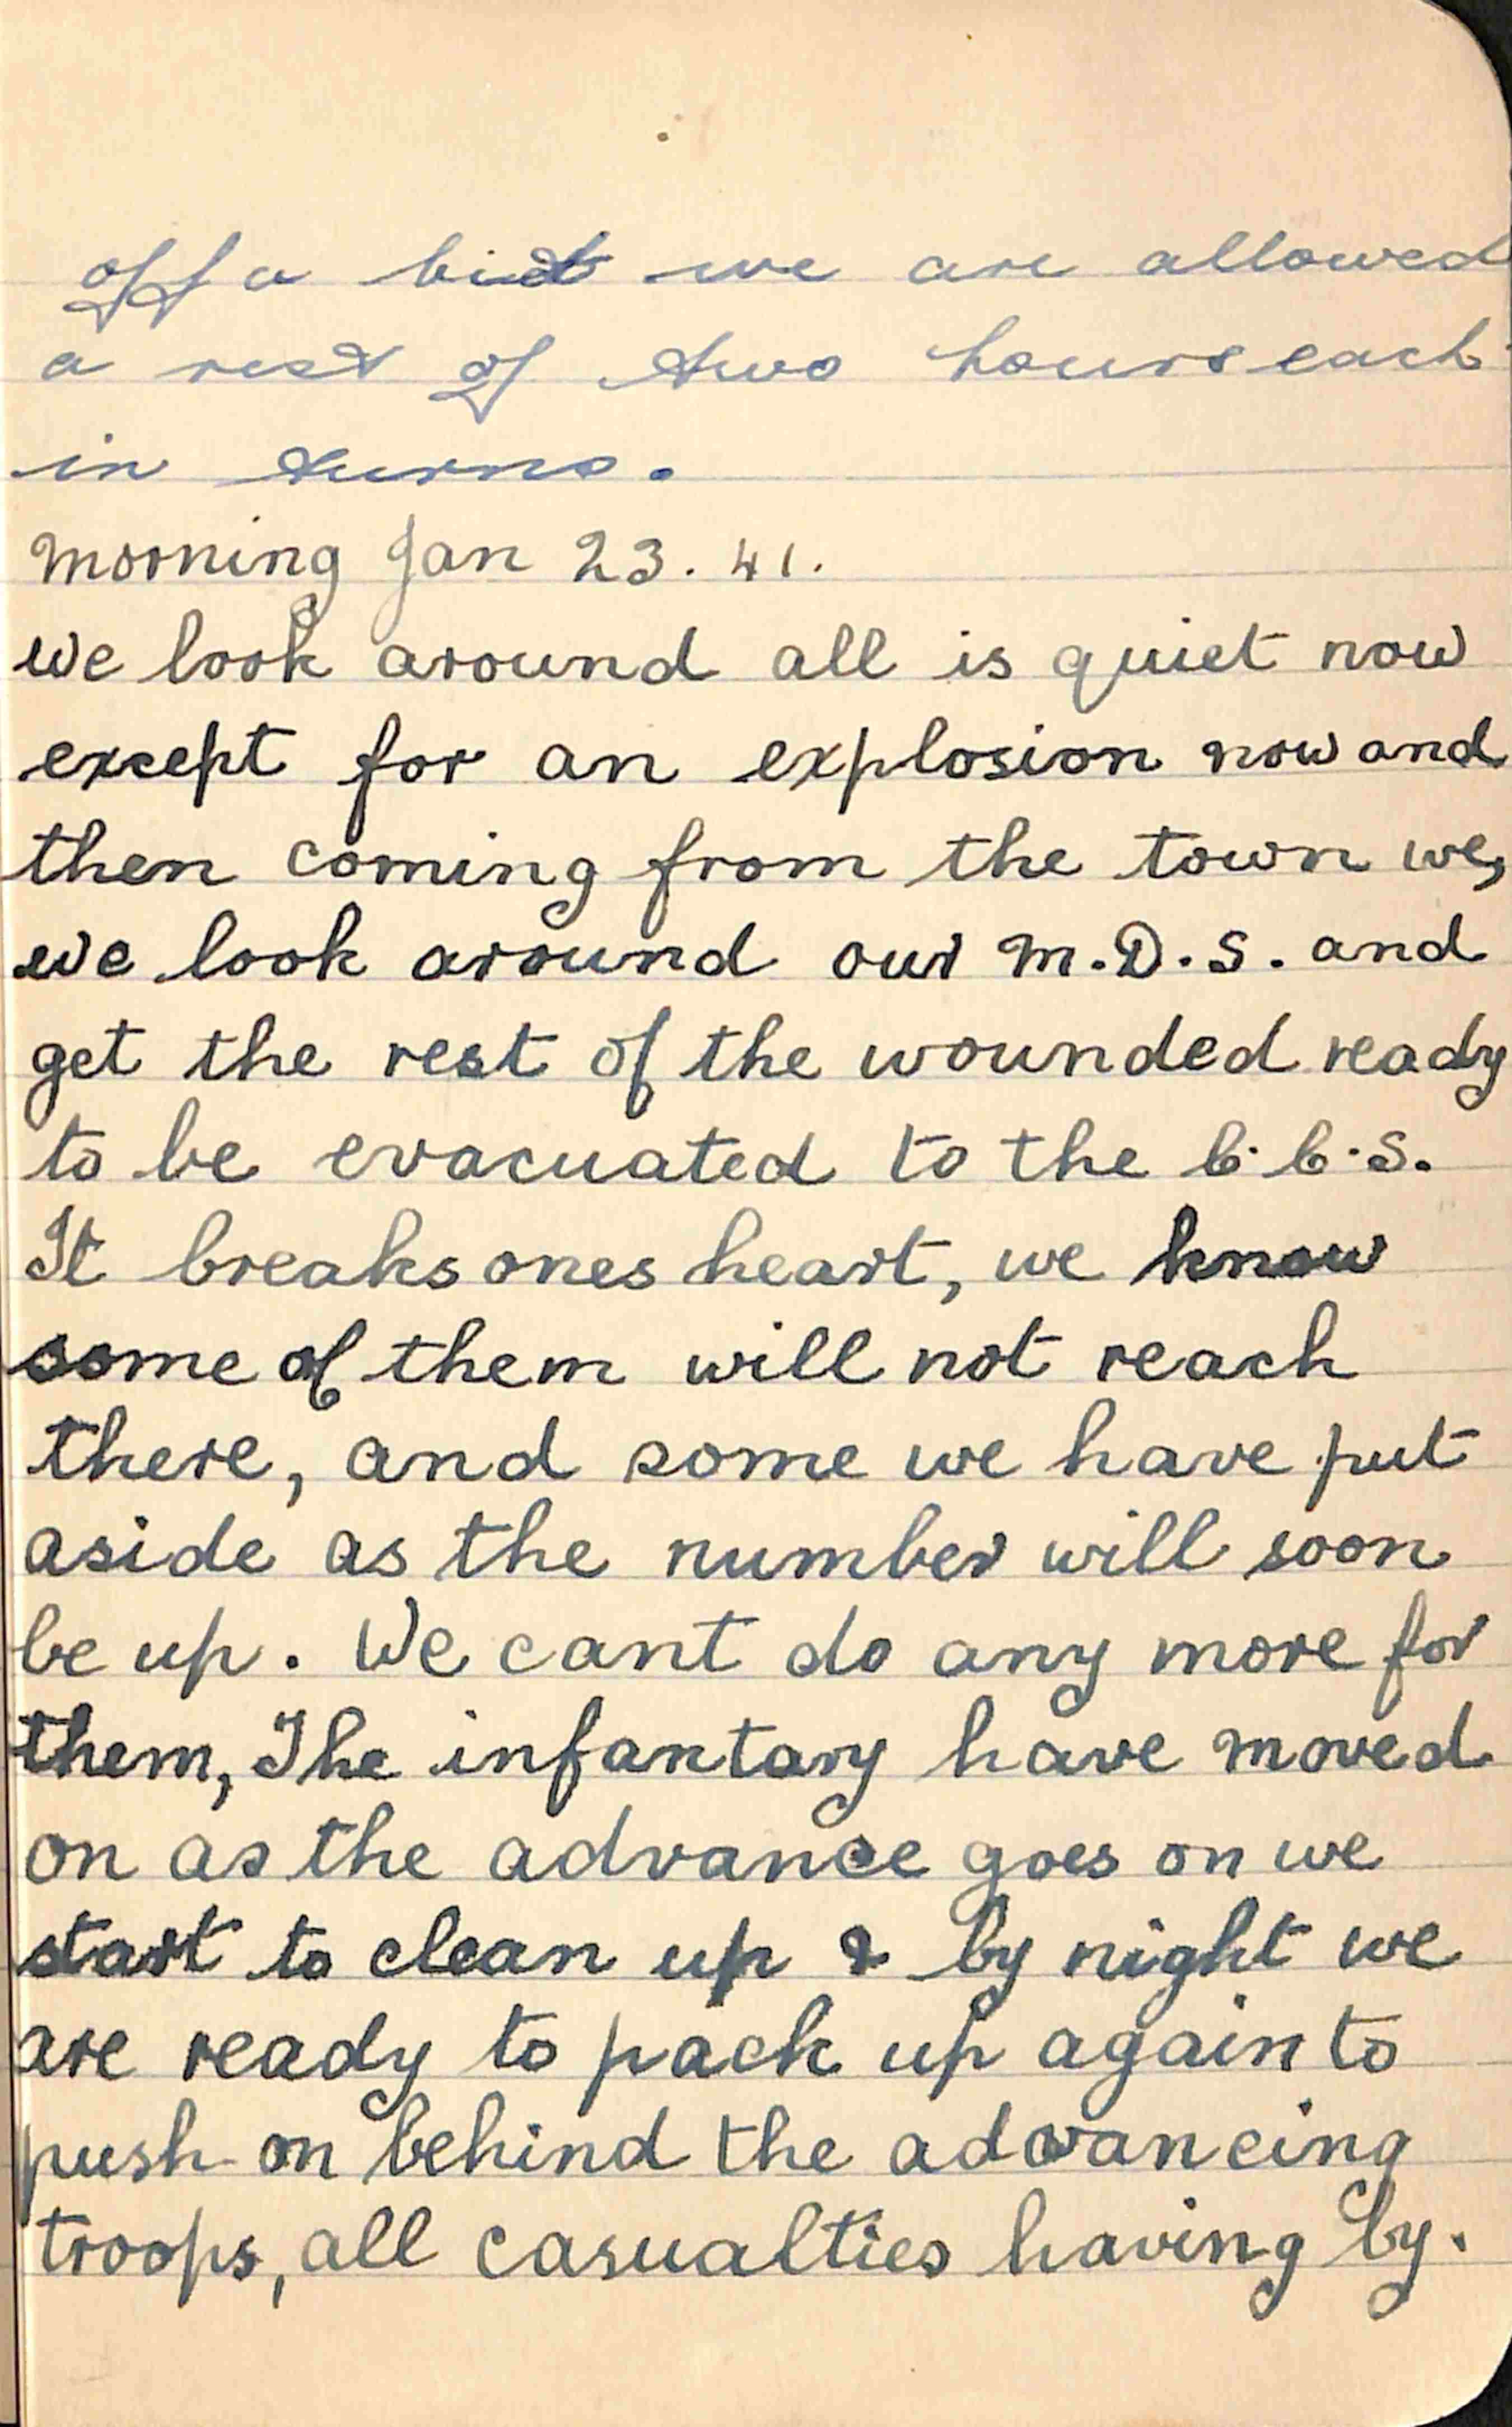 off a bit we are allowed
a rest of two hours each
in turns.
morning Jan 23. 41.
we look around all is quiet now
except for an explosion now and
then coming from the town we,
we look around our M.D.S. and
get the rest of the wounded ready
to be evacuated to the C.C.S.
It breaks ones heart, we know
some of them will not reach
there, and some we have put
aside as the number will soon
be up. We cant do any more for
them, The infantary have moved
on as the advance goes on we
start to clean up & by night we
are ready to pack up again to
push on behind the advancing
troops, all casualties having by.